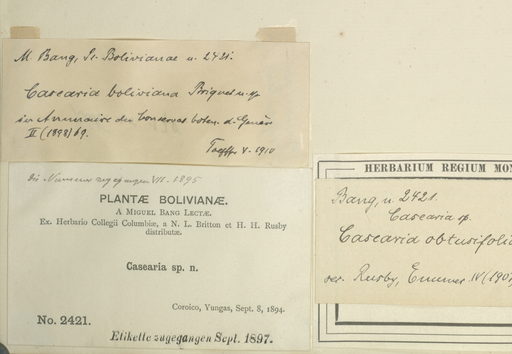 M. Bang, Pl. Bolivianae n. 2421.
Casearia boliviana Briquet n. sp.
in Annuaire du Conservat. botan. d. Genève
II (1898) 69.
V. 1910
Die Nummer zugegangen VII. 1895
PLANTÆ BOLIVIANÆ.
A MIGUEL BANG LECTÆ.
Ex. Herbario Collegii Columbiæ, a N. L. Britton et H. H. Rusby
distributæ.
Casearia sp. n.
Coroico, Yungas, Sept. 8, 1894.
No. 2421.
Etikette zugegangen Sept. 1897.
HERBARIUM REGIUM MON
Bang, n. 2421.
Casearia sp.
Casearia obtusifolia
Rusby, Enumer. IV (190